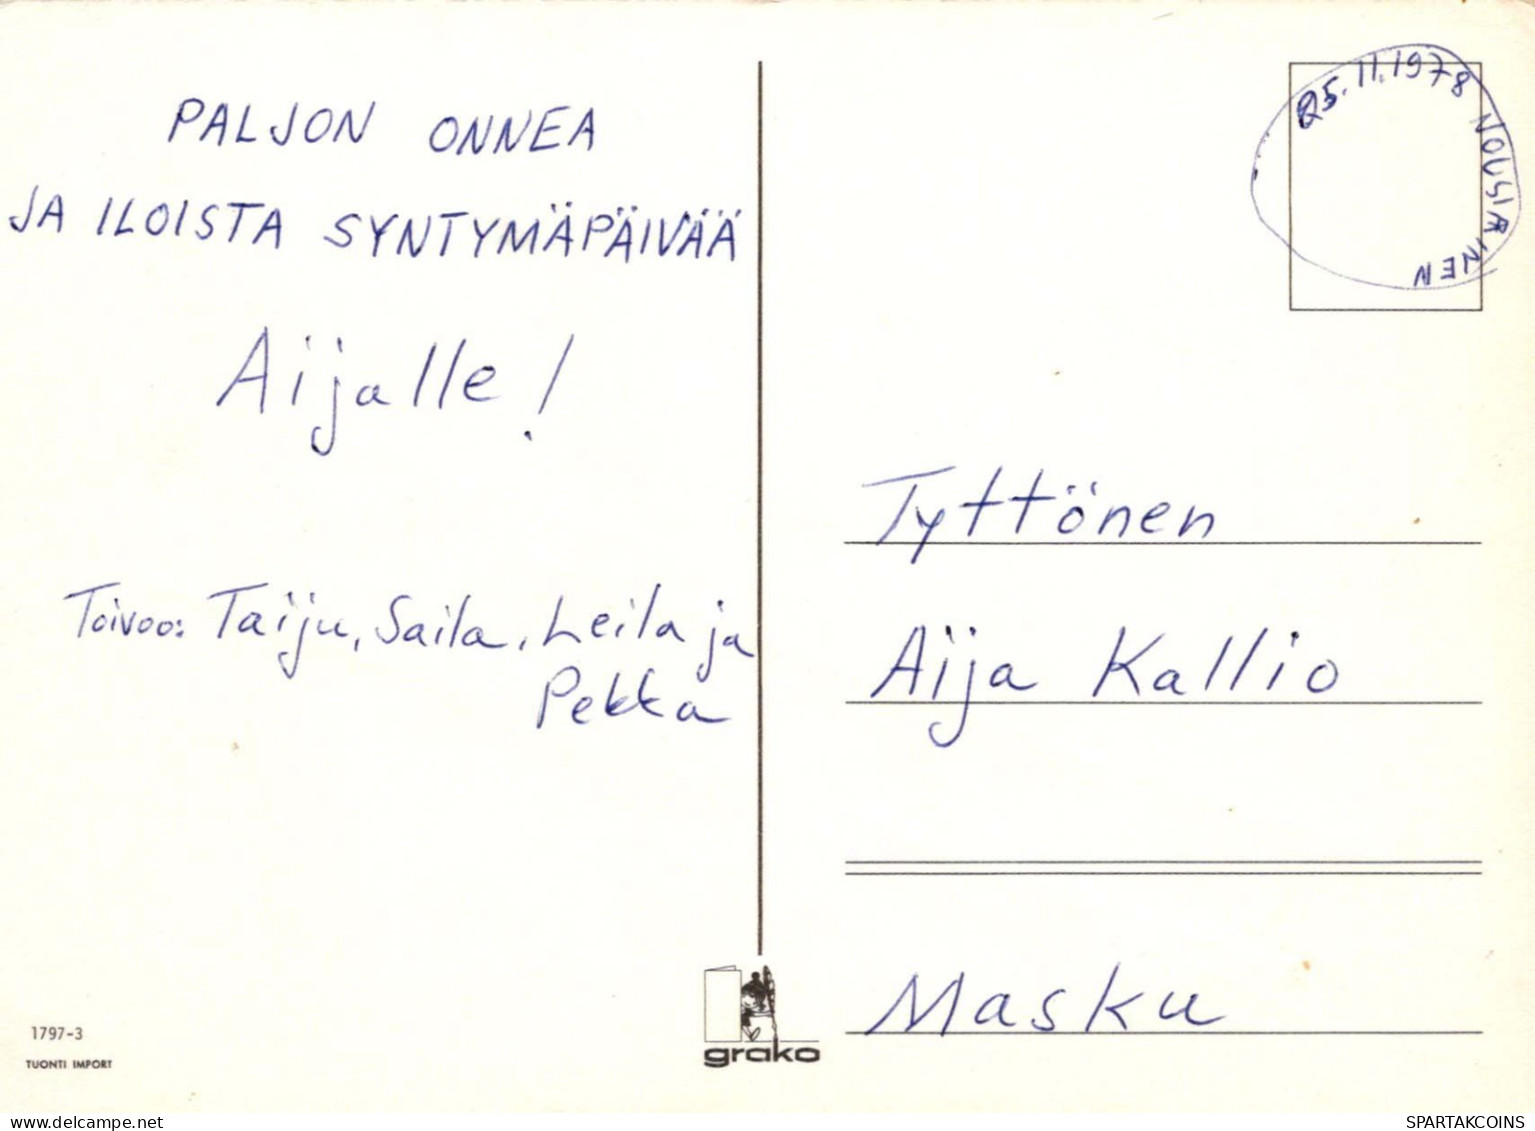 PALJON ONNEA
JA ILOISTA SYNTYMÄPÄIVÄÄ
Aijalle!
Toivoo: Taiju, Saila, Leila ja
Pekka
1797-3
TUONTI IMPORT
grako
25.11.1978 NOUSIAINEN
Tyttönen
Aija Kallio
Masku
delcampe.net
SPARTAKCOINS